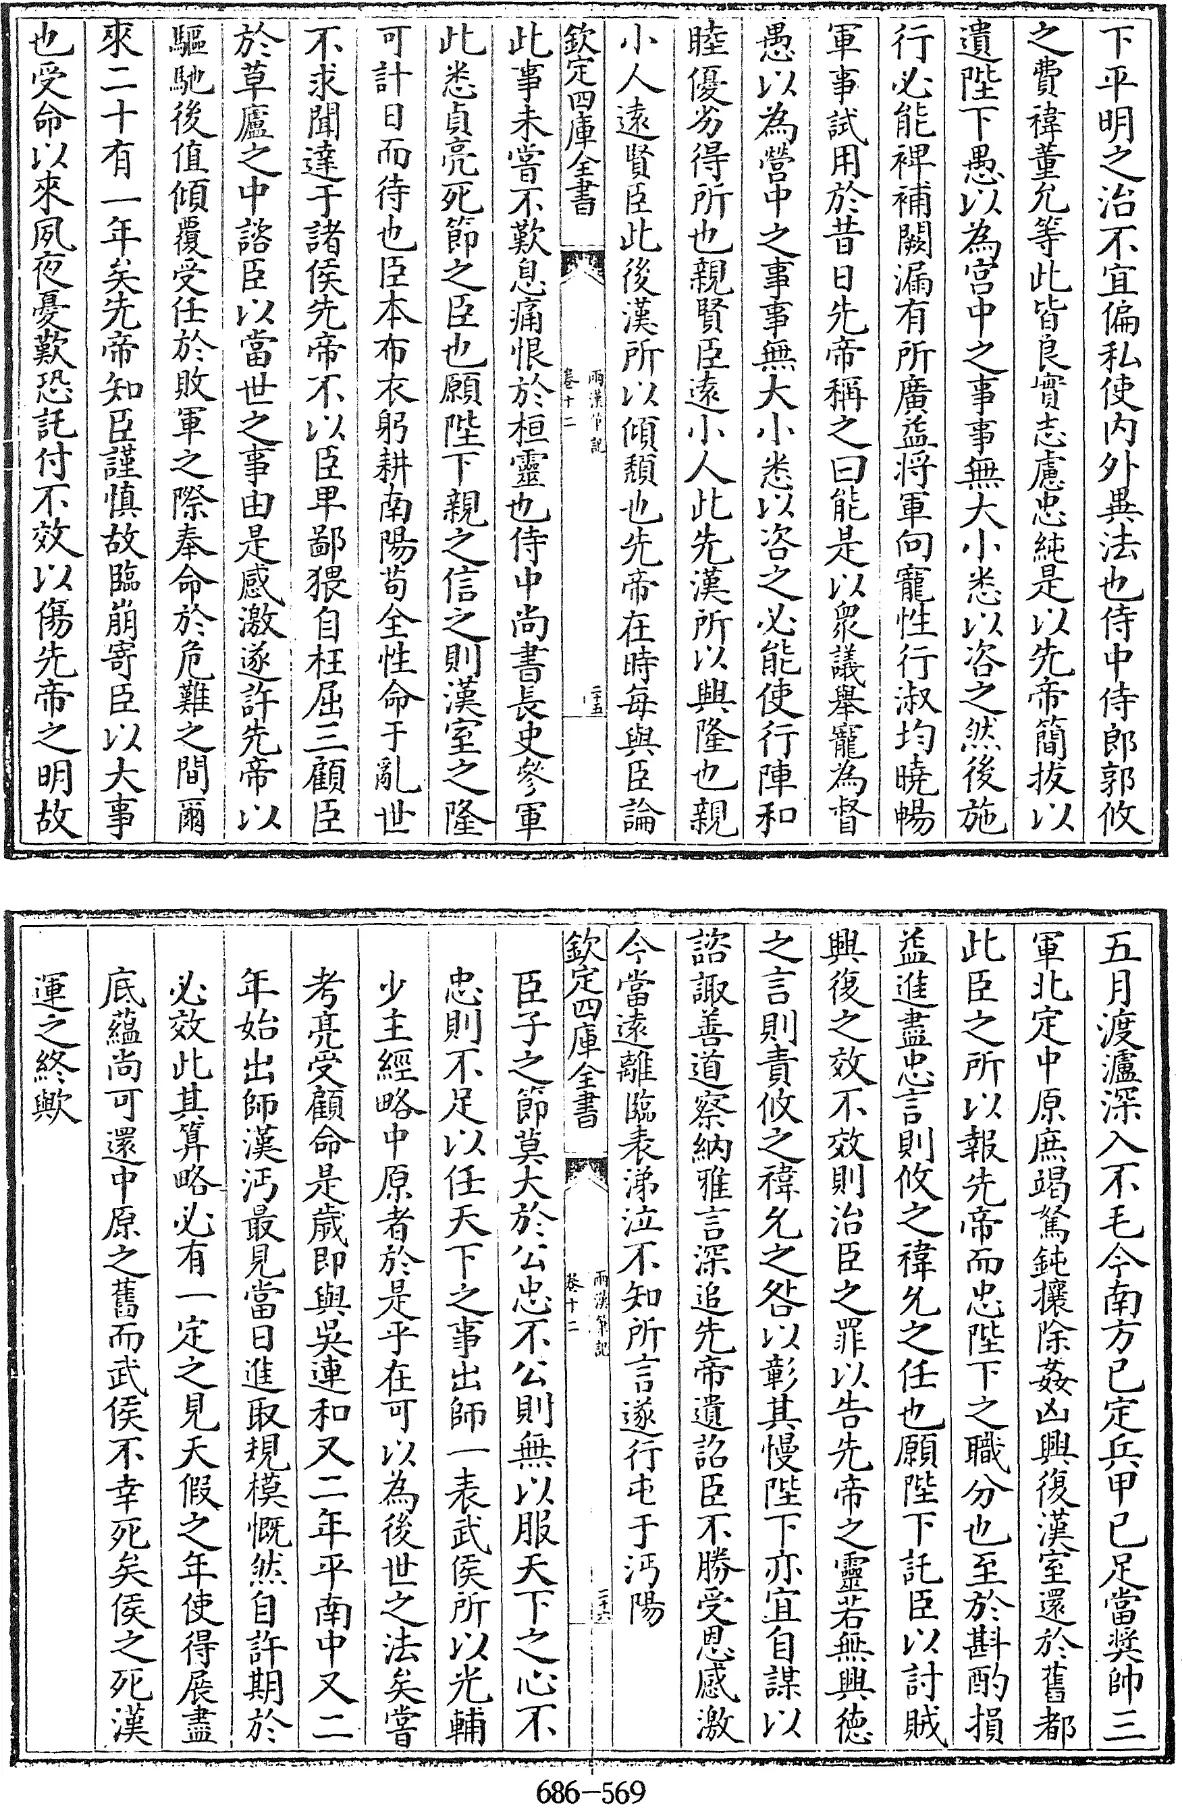 下平明之治不宜偏私使内外異法也侍中侍郎郭攸
之費禕董允等此皆良實志慮忠純是以先帝簡拔以
遺陛下愚以為宮中之事事無大小悉以咨之然後施
行必能裨補闕漏有所廣益将軍向寵性行淑均曉暢
軍事試用於昔日先帝稱之曰能是以衆議舉寵為督
愚以為營中之事事無大小悉以咨之必能使行陣和
睦優劣得所也親賢臣遠小人此先漢所以興隆也親
小人遠賢臣此後漢所以傾頽也先帝在時每與臣論
欽定四庫全書
兩漢筆記
卷十二
二十五
此事未嘗不歎息痛恨於桓靈也侍中尚書長史參軍
此悉貞亮死節之臣也願陛下親之信之則漢室之隆
可計日而待也臣本布衣躬耕南陽苟全性命于亂世
不求聞達于諸侯先帝不以臣卑鄙猥自枉屈三顧臣
於草廬之中諮臣以當世之事由是感激遂許先帝以
驅馳後值傾覆受任於敗軍之際奉命於危難之間爾
來二十有一年矣先帝知臣謹慎故臨崩寄臣以大事
也受命以來夙夜憂歎恐託付不效以傷先帝之明故
五月渡瀘深入不毛今南方已定兵甲已足當奨帥三
軍北定中原庶竭駑鈍攘除姦凶興復漢室還於舊都
此臣之所以報先帝而忠陛下之職分也至於斟酌損
益進盡忠言則攸之禕允之任也願陛下託臣以討賊
興復之效不效則治臣之罪以告先帝之靈若無興徳
之言則責攸之禕允之咎以彰其慢陛下亦宜自謀以
諮諏善道察納雅言深追先帝遺詔臣不勝受恩感激
今當遠離臨表涕泣不知所言遂行屯于沔陽
欽定四庫全書
兩漢筆記
卷十二
二十六
臣子之節莫大於公忠不公則無以服天下之心不
忠則不足以任天下之事出師一表武侯所以光輔
少主經略中原者於是乎在可以為後世之法矣嘗
考亮受顧命是歲即與吳連和又二年平南中又二
年始出師漢沔最見當日進取規模慨然自許期於
必效此其算略必有一定之見天假之年使得展盡
底蘊尚可還中原之舊而武侯不幸死矣侯之死漢
運之終歟
686-569